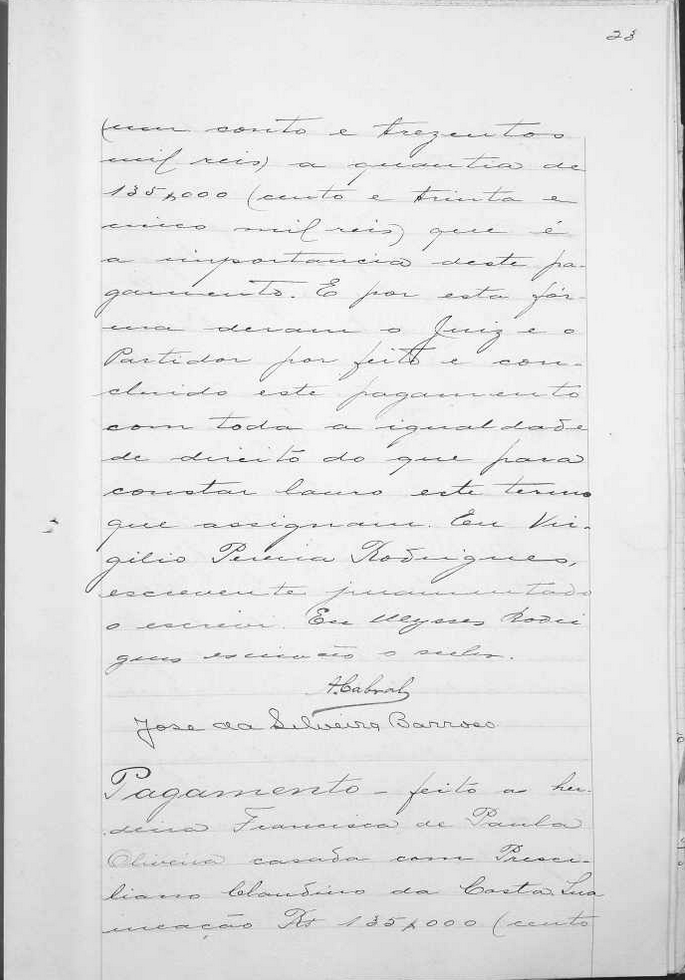 23
(um conto e trezentos
mil reis) a quantia de
135$000 (cento e trinta e
cinco mil reis) que é
a importancia deste pa-
gamento. E por esta fór-
ma deram o Juiz e o
Partidor por feito e con-
cluido este pagamento
com toda a igualdade
de direito do que para
constar lavro este termo
que assignam. Eu Vir-
gilio Pereira Rodrigues,
escrevente juramentado
o escrevi. Eu Ulysses Rodri
gues escrivão o subscr.
A. Cabral
José da Silveira Barroso
Pagamento - feito a her-
deira Francisca de Paula
Oliveira casada com Presci-
liano Claudino da Costa. Sua
meação Rs 135$000 (cento